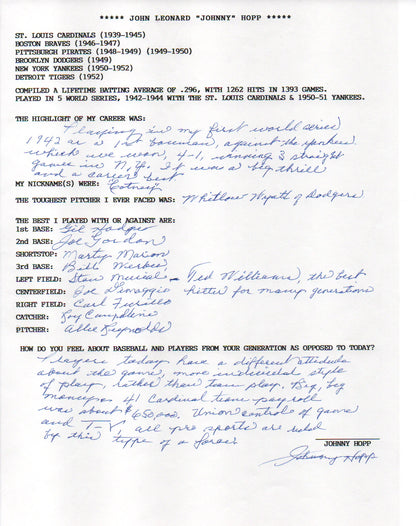 ***** JOHN LEONARD "JOHNNY" HOPP *****
ST. LOUIS CARDINALS (1939-1945)
BOSTON BRAVES (1946-1947)
PITTSBURGH PIRATES (1948-1949) (1949-1950)
BROOKLYN DODGERS (1949)
NEW YORK YANKEES (1950-1952)
DETROIT TIGERS (1952)
COMPILED A LIFETIME BATTING AVERAGE OF .296, WITH 1262 HITS IN 1393 GAMES.
PLAYED IN 5 WORLD SERIES, 1942-1944 WITH THE ST. LOUIS CARDINALS & 1950-51 YANKEES.
THE HIGHLIGHT OF MY CAREER WAS:
Playing in my first world series
1942 as a 1st baseman, against the Yankees
which we won, 4-1, winning 3 straight
games in N.Y. It was a big thrill
and a career best
MY NICKNAME(S) WERE: Cotney
THE TOUGHEST PITCHER I EVER FACED WAS: Whitlow Wyatt of Dodgers
THE BEST I PLAYED WITH OR AGAINST ARE:
1st BASE: Gil Hodges
2nd BASE: Joe Gordon
SHORTSTOP: Marty Marion
3rd BASE: Bill Werber
LEFT FIELD: Stan Musial - Ted Williams, the best
CENTERFIELD: Joe Dimaggio hitter for many generations
RIGHT FIELD: Carl Furillo
CATCHER: Roy Campanella
PITCHER: Allie Reynolds
HOW DO YOU FEEL ABOUT BASEBALL AND PLAYERS FROM YOUR GENERATION AS OPPOSED TO TODAY?
Players today have a different attitude
about the game, more individual style
of play, rather than team play. Big, Big
money, 41 Cardinal team payroll
was about $650,000. Union controls of game
and T-V, all pro sports are ruled
by this type of a
JOHNNY HOPP
Johnny Hopp